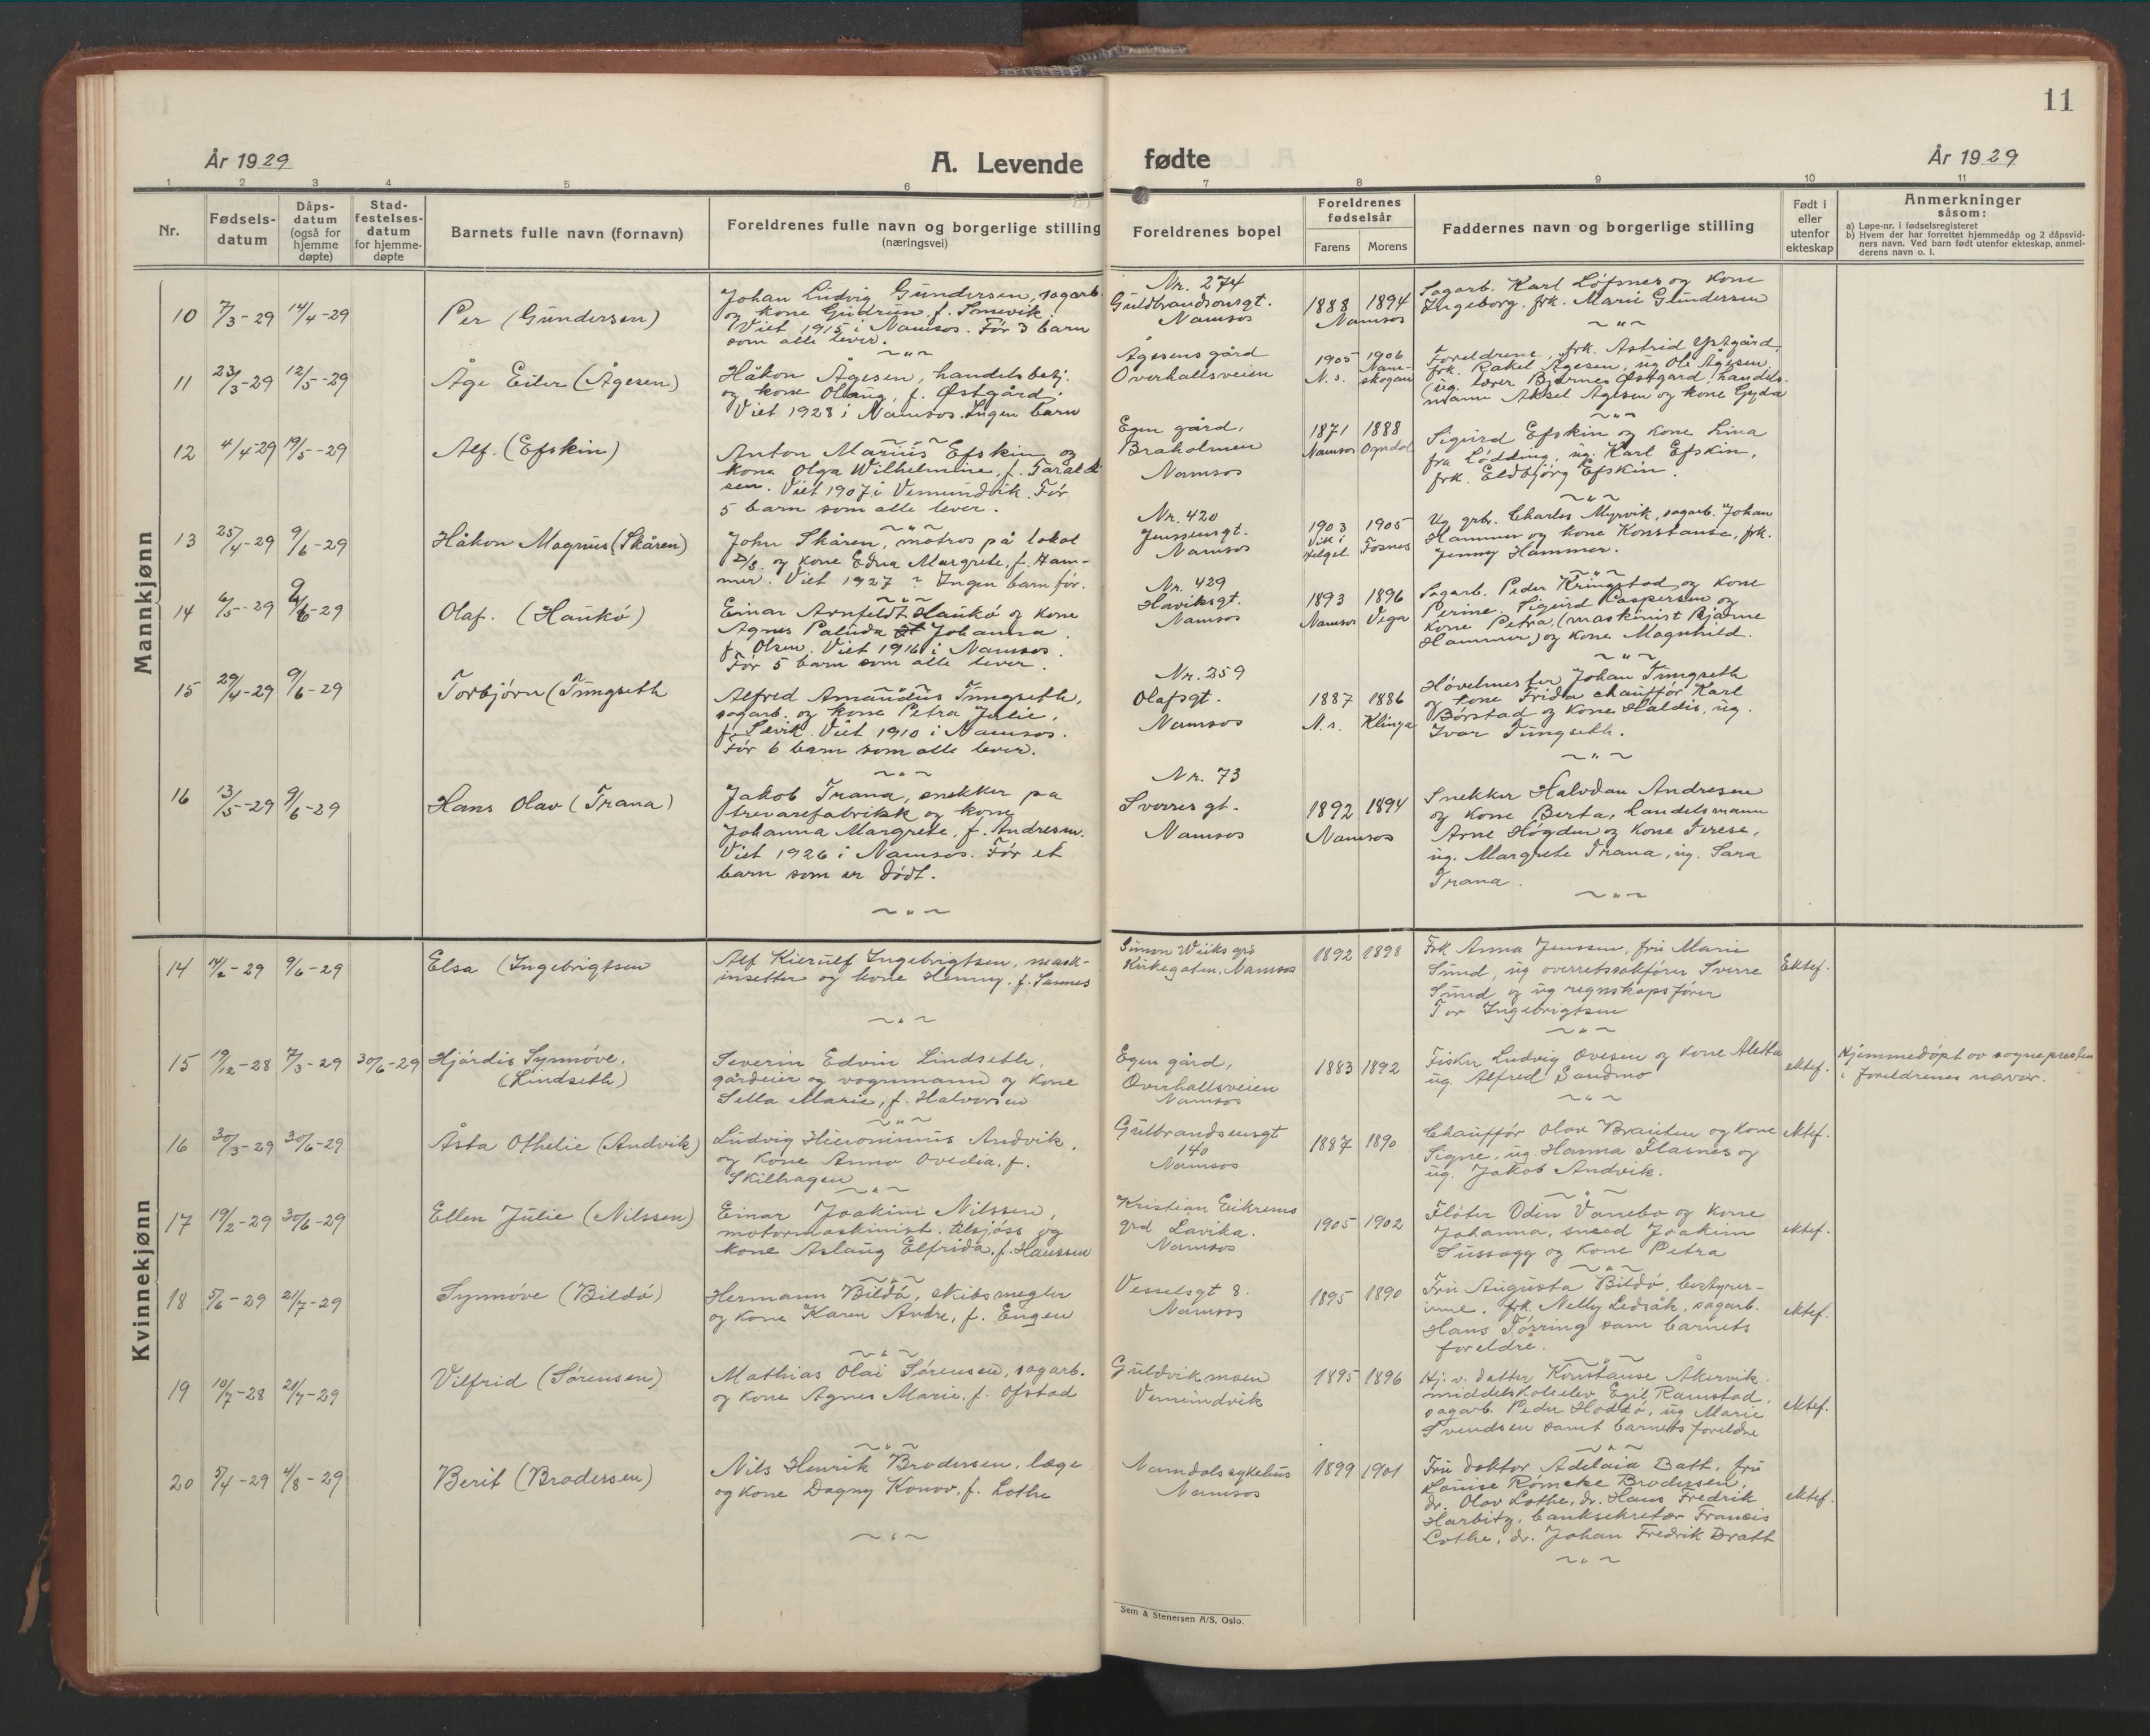 11
År 1929
A. Levende fødte
År 1929
1 2 3 4 5 6 7 8 9 10 11
Nr.
Fødsels-
datum
Dåps-
datum
(også for
hjemme
døpte)
Stad-
festelses-
datum
for hjemme-
døpte
Barnets fulle navn (fornavn)
Foreldrenes fulle navn og borgerlige stilling
(næringsvei)
Foreldrenes bopel
Foreldrenes
fødselsår
Farens Morens
Faddernes navn og borgerlige stilling
Født i
eller
utenfor
ekteskap
Anmerkninger
såsom:
a) Løpe-nr. i fødselsregisteret
b) Hvem der har forrettet hjemmedåp og 2 dåpsvid-
ners navn. Ved barn født utenfor ekteskap, anmel-
derens navn o. l.
Mannkjønn
10 7/3-29 14/4-29 Per (Gundersen)
Johan Ludvig Gundersen, sagarb.
og kone Gudrun, f. Smevik.
Viet 1915 i Namsos. Før 3 barn
som alle lever.
Nr. 274
Guldbrandsonsgt.
Namsos
1888 1894
Namsos
Sagarb. Karl Løfsnes og kone
Ingeborg, frk. Marie Gundersen
11 23/3-29 12/5-29 Åge Eiler (Ågesen)
Håkon Ågesen, handelsbetj.
og kone Olaug, f. Østgård.
Viet 1928 i Namsos. Ingen barn
Ågesens gård
Overhallsveien
1905 1906
N.s. Nam-
skogan
Foreldrene, frk. Astrid Østgård,
frk. Rakel Ågesen, ug Ole Ågesen,
ug. lærer Bjarnes Østgard, handels-
mann Aksel Ågesen og kone Gyda
12 4/4-29 19/5-29 Alf. (Efskin)
Anton Marius Efskin og
kone Olga Wilhelmine, f. Garald
sen. Viet 1907 i Vemundvik. Før
5 barn som alle lever.
Egen gård,
Braholmen
Namsos
1871 1888
Namsos Ogndal
Sigurd Efskin og kone Lina
fru Lødding, ug. Karl Efskin,
frk. Eldbjørg Efskin.
13 25/4-29 9/6-29 Håkon Magnus (Skåren)
John Skåren, matros på lokal
D/S. og kone Edna Margrete, f. Ham-
mer. Viet 1927 ? Ingen barn før.
Nr. 420
Jensensgt.
Namsos
1903 1905
Vik i
Helgel. Fosnes
Ug. grbr. Charles Myrvik, sagarb. Johan
Hammer og kone Konstanse, frk.
Jenny Hammer.
14 6/5-29 9/6-29 Olaf. (Haukø)
Einar Arnfeldt Haukø og kone
Agnes Paluda Johanna,
f. Olsen. Viet 1916 i Namsos.
Før 5 barn som alle lever.
Nr. 429
Haviksgt.
Namsos
1893 1896
Namsos Vega
Sagarb. Peder Kringstad og kone
Perine. Sigurd Kaspersen og
kone Petra, (maskinist Bjarne
Hammer) og kone Magnhild.
15 29/4-29 9/6-29 Torbjørn (Tungseth
Alfred Amandus Tungseth,
sagarb. og kone Petra Julie,
f. Sævik. Viet 1910 i Namsos.
Før 6 barn som alle lever.
Nr. 259
Olafsgt.
Namsos
1887 1886
N.s. Klinga
Høvelmester Johan Tungseth
og kone Frida, chauffør Karl
Børstad og kone Haldis, ug.
Ivar Tungseth.
16 13/5-29 9/6-29 Hans Olav (Trana)
Jakob Trana, snekker på
trevarefabrikk og kone
Johanna Margrete, f. Andresen.
Viet 1926 i Namsos. Før et
barn som er dødt.
Nr. 73
Sverres gt.
Namsos
1892 1894
Namsos
Snekker Halvdan Andresen
og kone Berta, handelsmann
Arne Høgden og kone Terese,
ug. Margrete Trana, ug. Sara
Trana.
Kvinnekjønn
14 14/2-29 9/6-29 Elsa (Ingebrigtsen
Alf Kierulf Ingebrigtsen, mask-
insetter og kone Henny, f. Sannes
Simon Wiiks grd
Kirkegaten, Namsos
1892 1898
Frk Anna Jenssen, fru Marie
Sund, ug overretssakfører Sverre
Sund og ug regnskapsfører
Tor Ingebrigtsen
Ektef.
15 19/12-28 7/3-29 30/6-29 Hjørdis Synnøve,
(Lindseth)
Severin Edvin Lindseth,
gårdeier og vognmann og kone
Sella Marie, f. Halvorsen
Egen gård,
Overhallsveien
Namsos
1883 1892
Fisker Ludvig Ovesen og kone Aletta
ug. Alfred Sandmo
ektef.
Hjemmedøpt av sognepresten
i foreldrenes nærvær.
16 30/3-29 30/6-29 Åsta Othelie (Andvik)
Ludvig Hieronimus Andvik,
og kone Anna Ovedia, f.
Skilhagen
Gulbrandsensgt
140
Namsos
1887 1890
Chauffør Olav Brauten og kone
Signe, ug. Hanna Flasnes og
ug. Jakob Andvik.
ektef.
17 19/2-29 30/6-29 Ellen Julie (Nilssen)
Einar Joakim Nilssen,
motormaskinist. tilsjøss og
kone Aslaug Elfrida, f. Hanssen
Kristian Eikrems
grd Lavika.
Namsos
1905 1902
Fløter Odin Vannebo og kone
Johanna, smed Joakim
Sussegg og kone Petra
ektef.
18 5/6-29 21/7-29 Synnøve (Bildø)
Hermann Bildø, skibsmegler
og kone Karen Andre, f. Engen
Vesselsgt 8.
Namsos
1895 1890
Fru Augusta Bildø, bestyrer-
inne, frk. Nelly Ledsåk, sagarb.
Hans Tørring samt barnets
foreldre.
ektef.
19 10/7-28 21/7-29 Vilfrid (Sørensen)
Mathias Olai Sørensen, sagarb.
og kone Agnes Marie, f. Ofstad
Guldvikmoen
Vemundvik
1895 1896
Hj. v. datter Konstanse Åkervik.
middelskoleelev Egil Ramstad,
sagarb. Peder Hoddø, ug Marie
Svendsen samt barnets foreldre
ektef.
20 5/4-29 4/8-29 Berit (Brodersen)
Nils Henrik Brodersen, læge
og kone Dagny Konov, f. Lothe
Namdalssykehus
Namsos
1899 1901
Fru doktor Adelaia Batt, fru
Louise Rømcke Brodersen,
dr. Olav Lothe, dr. Hans Fredrik
Harbitz, banksekretær Francis
Lothe, dr. Johan Fredrik Bratt
ektef.
Sem & Stenersen A/S, Oslo.